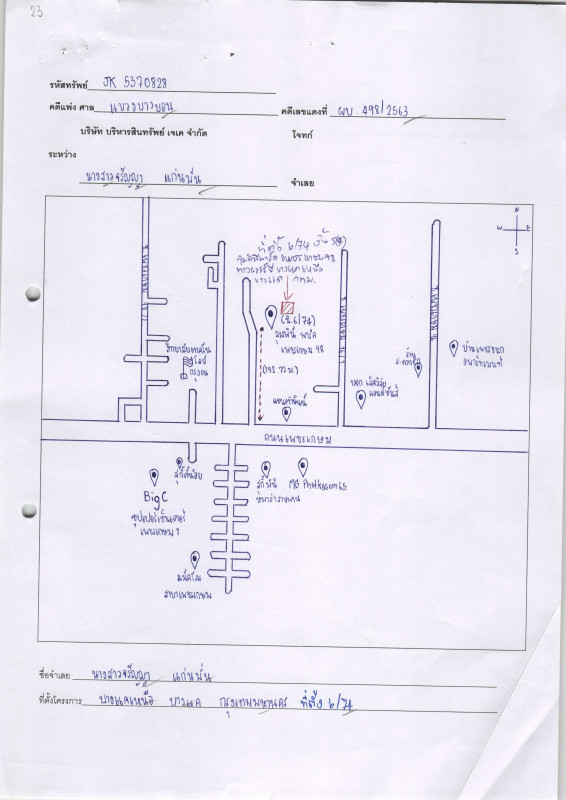 23
รหัสทรัพย์ JK 5370828
คดีแพ่ง ศาล แขวงบางบอน คดีเลขแดงที่ ผบ 498/2563
บริษัท บริหารสินทรัพย์ เจเค จำกัด โจทก์
ระหว่าง
นางสาวจรัญญา แก่นพั่น จำเลย
N
W E
S
ที่ตั้ง 6/74
เพชรเกษม 98
กทม.
(ข.6/74)
ลุมพินี พาร์ค
เพชรเกษม 98
(142.73 ม.)
วิทยาลัยเทคโน
โลยี
กรุงธน
บ้านเพชรเกษม
อพาร์ทเมนท์
ถนนเพชรเกษม
สุกี้ตี๋น้อย
BigC
ซุปเปอร์เซ็นเตอร์
เพชรเกษม 2
MG Phetkasem 65
แม็คโคร
สาขาเพชรเกษม
ชื่อจำเลย นางสาวจรัญญา แก่นพั่น
ที่ตั้งโครงการ บางแคเหนือ บางแค กรุงเทพมหานคร ที่ตั้ง 6/74